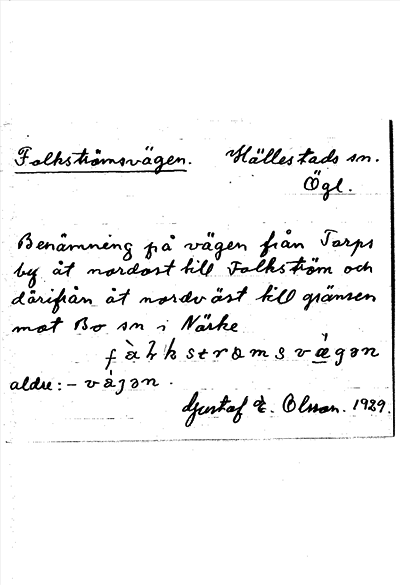 Folkströmsvägen. Hällestads sn.
Ögl.
Benämning på vägen från Torps
by åt nordost till Folkström och
därifrån åt nordväst till gränsen
mot Bo sn i Närke
äldre: -
Gustaf E. Olsson. 1929.